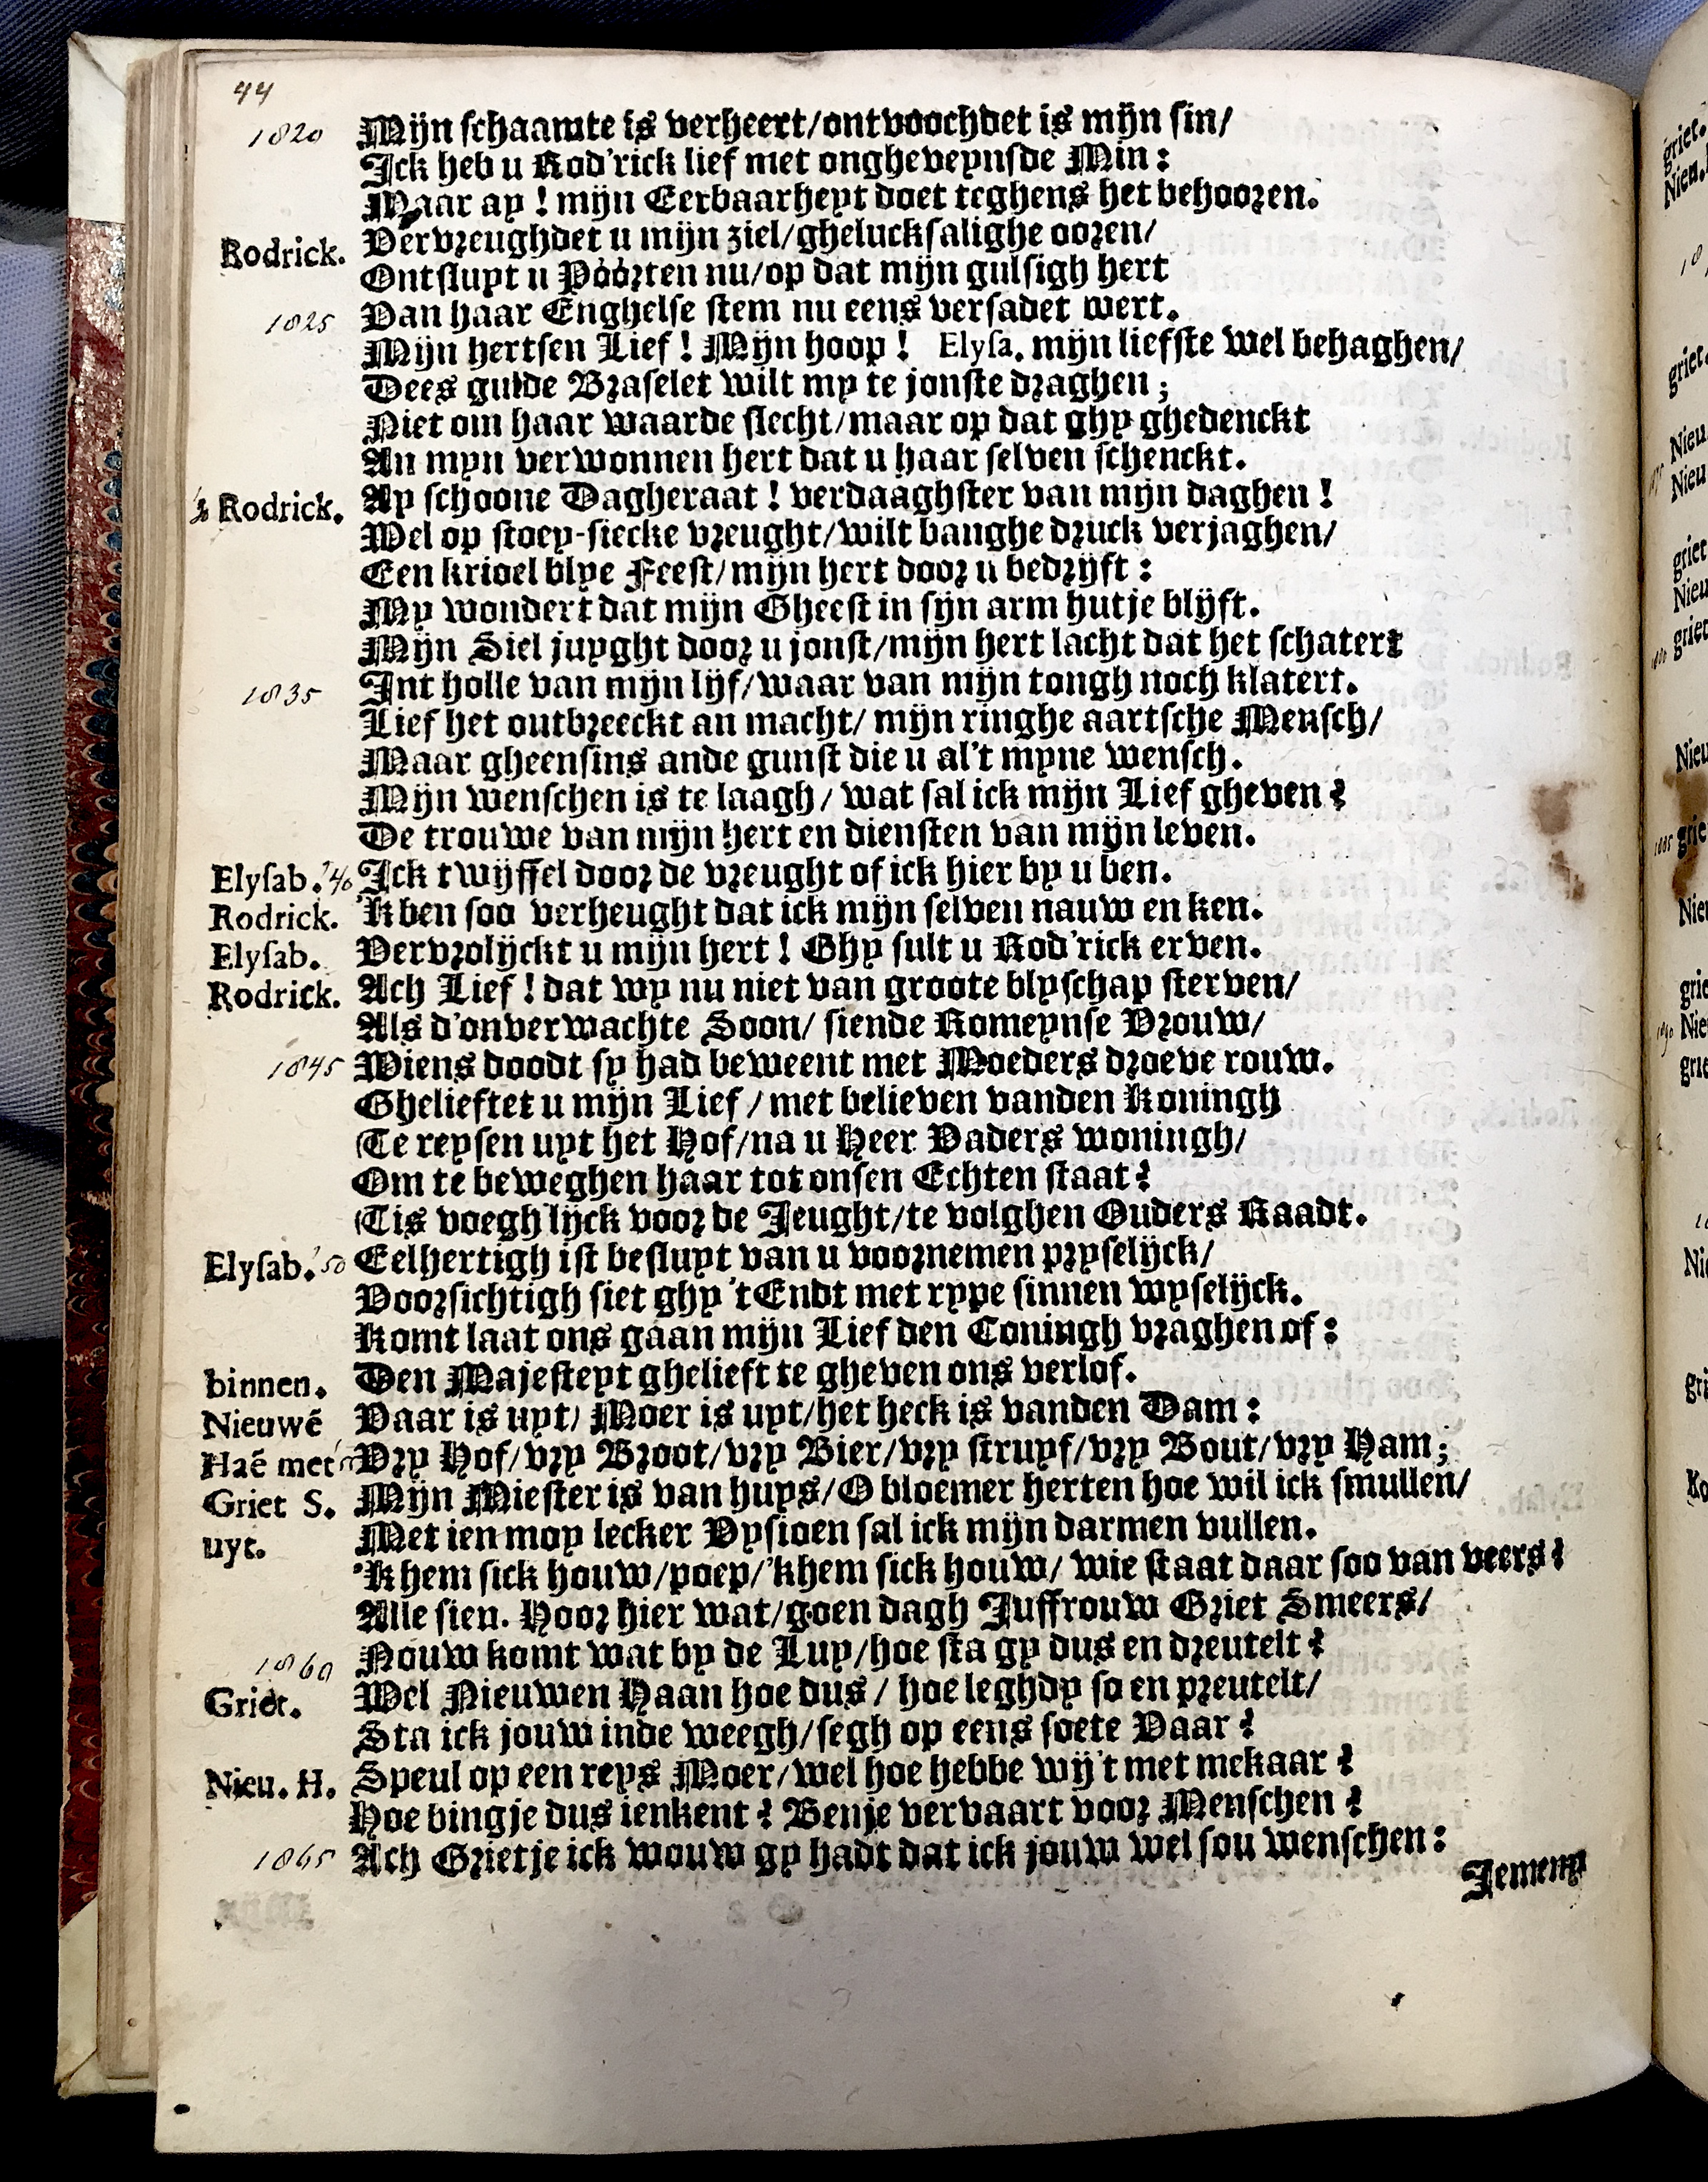 44
1820 Mijn schaamte is verheert/ontvoochdet is mijn sin/
Ick heb u Rod'rick lief met ongheveynsde Min:
Maar ay! mijn Eerbaarheyt doet teghens het behooren.
Rodrick. Vervreughdet u mijn ziel/ghelucksalighe ooren/
Ontsluyt u Póórten nu/op dat mijn gulsigh hert
1825 Van haar Enghelse stem nu eens versadet wert.
Mijn hertsen Lief! Mijn hoop! Elysa. mijn liefste wel behaghen/
Dees gulde Braselet wilt my te jonste draghen;
Niet om haar waarde slecht/maar op dat ghy ghedenckt
An myn verwonnen hert dat u haar selven schenckt.
Rodrick. Ay schoone Dagheraat! verdaaghster van mijn daghen!
Wel op stoep-siecke vreught/wilt banghe druck verjaghen/
Een krioel blye Feest/mijn hert door u bedrijft:
My wondert dat mijn Gheest in sijn arm hutje blijft.
Mijn Siel juyght door u jonst/mijn hert lacht dat het schatert
1835 Int holle van mijn lijf/waar van mijn tongh noch klatert.
Lief het outbreeckt an macht/ mijn ringhe aartsche Mensch/
Maar gheensins ande gunst die u al't myne wensch.
Mijn wenschen is te laagh/ wat sal ick mijn Lief gheven?
De trouwe van mijn hert en diensten van mijn leven.
Elysab. '40 Ick twijffel door de vreught of ick hier by u ben.
Rodrick. 'K ben soo verheught dat ick mijn selven nauw en ken.
Elysab. Vervrolijckt u mijn hert! Ghy sult u Rod'rick erven.
Rodrick. Ach Lief! dat wy nu niet van groote blyschap sterven/
Als d'onverwachte Soon/ siende Romeynse Vrouw/
1845 Wiens doodt sy had beweent met Moeders droeve rouw.
Ghelieftet u mijn Lief/ met believen vanden Koningh
Te reysen uyt het Hof/na u Heer Vaders woningh/
Om te beweghen haar tot onsen Echten staat?
Tis voegh'lijck voor de Jeught/te volghen Ouders Raadt.
Elysab. '50 Eelhertigh ist besluyt van u voornemen pryselijck/
Voorsichtigh siet ghy 't Endt met rype sinnen wyselijck.
Komt laat ons gaan mijn Lief den Coningh vraghen of:
binnen. Den Majesteyt ghelieft te gheven ons verlof.
Nieuwẽ Vaar is uyt/ Moer is uyt/het heck is vanden Dam:
Haẽ met Vry Hof/vry Broot/vry Bier/vry struyf/vry Bout/vry Ham;
Griet S. Mijn Miester is van huys/O bloemer herten hoe wil ick smullen/
uyt. Met ien moy lecker Vysioen sal ick mijn darmen vullen.
'K hem sick houw/poep/'khem sick houw/ wie staat daar soo van veers?
Alle sien. Hoor hier wat/goen dagh Juffrouw Griet Smeers/
1860 Nouw komt wat by de Luy/hoe sta gy dus en dreutelt?
Griet. Wel Nieuwen Haan hoe dus/ hoe leghdy so en preutelt/
Sta ick jouw inde weegh/segh op eens soete Vaar?
Nieu. H. Speul op een reys Moer/wel hoe hebbe wij't met mekaar?
Hoe bingje dus ienkent? Benje vervaart voor Menschen?
1865 Ach Grietje ick wouw gy hadt dat ick jouw wel sou wenschen:
Jemeny